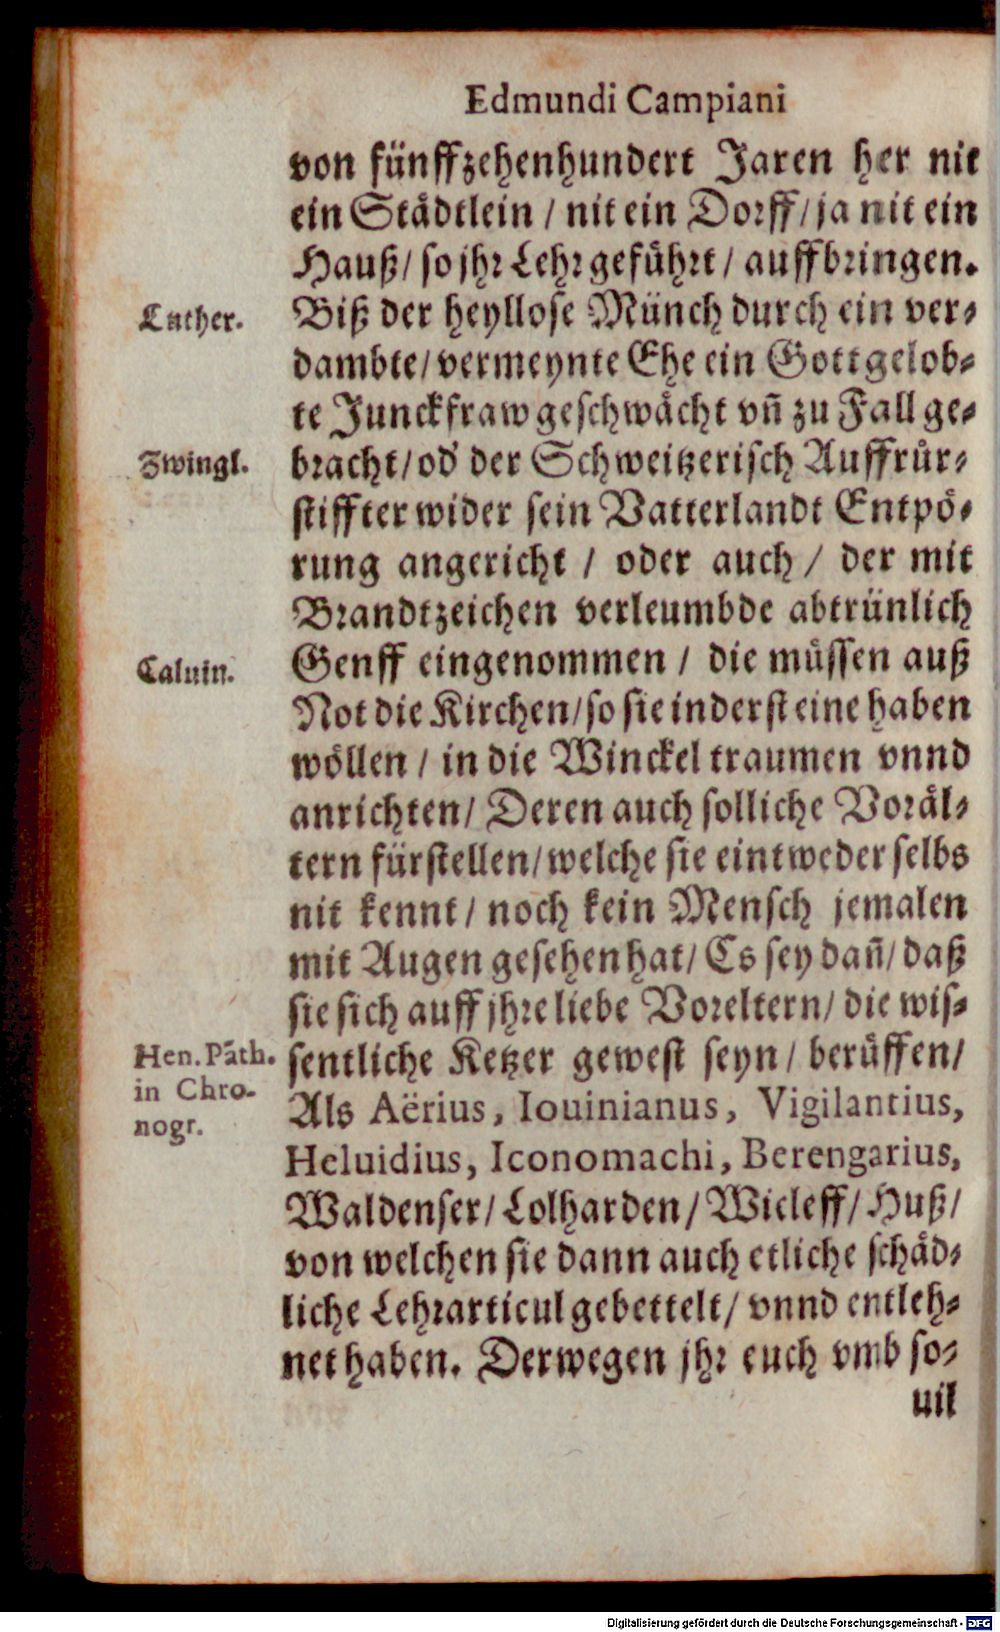 Edmundi Campiani
von fünffzehenhundert Jaren her nit
ein Städtlein / nit ein Dorff / ja nit ein
Hauß / so jhr Lehr geführt / auffbringen.
Luther.
Biß der heyllose Münch durch ein ver⸗
dambte / vermeynte Ehe ein Gott gelob⸗
te Junckfraw geschwächt vn̄ zu Fall ge⸗
Zwingl.
bracht / od' der Schweitzerisch Auffrür⸗
stiffter wider sein Vatterlandt Entpö⸗
rung angericht / oder auch / der mit
Brandtzeichen verleumbde abtrünlich
Caluin.
Genff eingenommen / die müssen auß
Not die Kirchen / so sie inderst eine haben
wöllen / in die Winckel traumen vnnd
anrichten / Deren auch solliche Voräl⸗
tern fürstellen / welche sie eintweder selbs
nit kennt / noch kein Mensch jemalen
mit Augen gesehen hat / Es sey dan̄ / daß
sie sich auff jhre liebe Voreltern / die wis⸗
Hen. Pāth.
in Chro-
nogr.
sentliche Ketzer gewest seyn / berüffen /
Als Aërius, Iouinianus, Vigilantius,
Heluidius, Iconomachi, Berengarius,
Waldenser / Lolharden / Wicleff / Huß /
von welchen sie dann auch etliche schäd⸗
liche Lehrarticul gebettelt / vnnd entleh⸗
net haben. Derwegen jhr euch vmb so⸗
uil
Digitalisierung gefördert durch die Deutsche Forschungsgemeinschaft - DFG